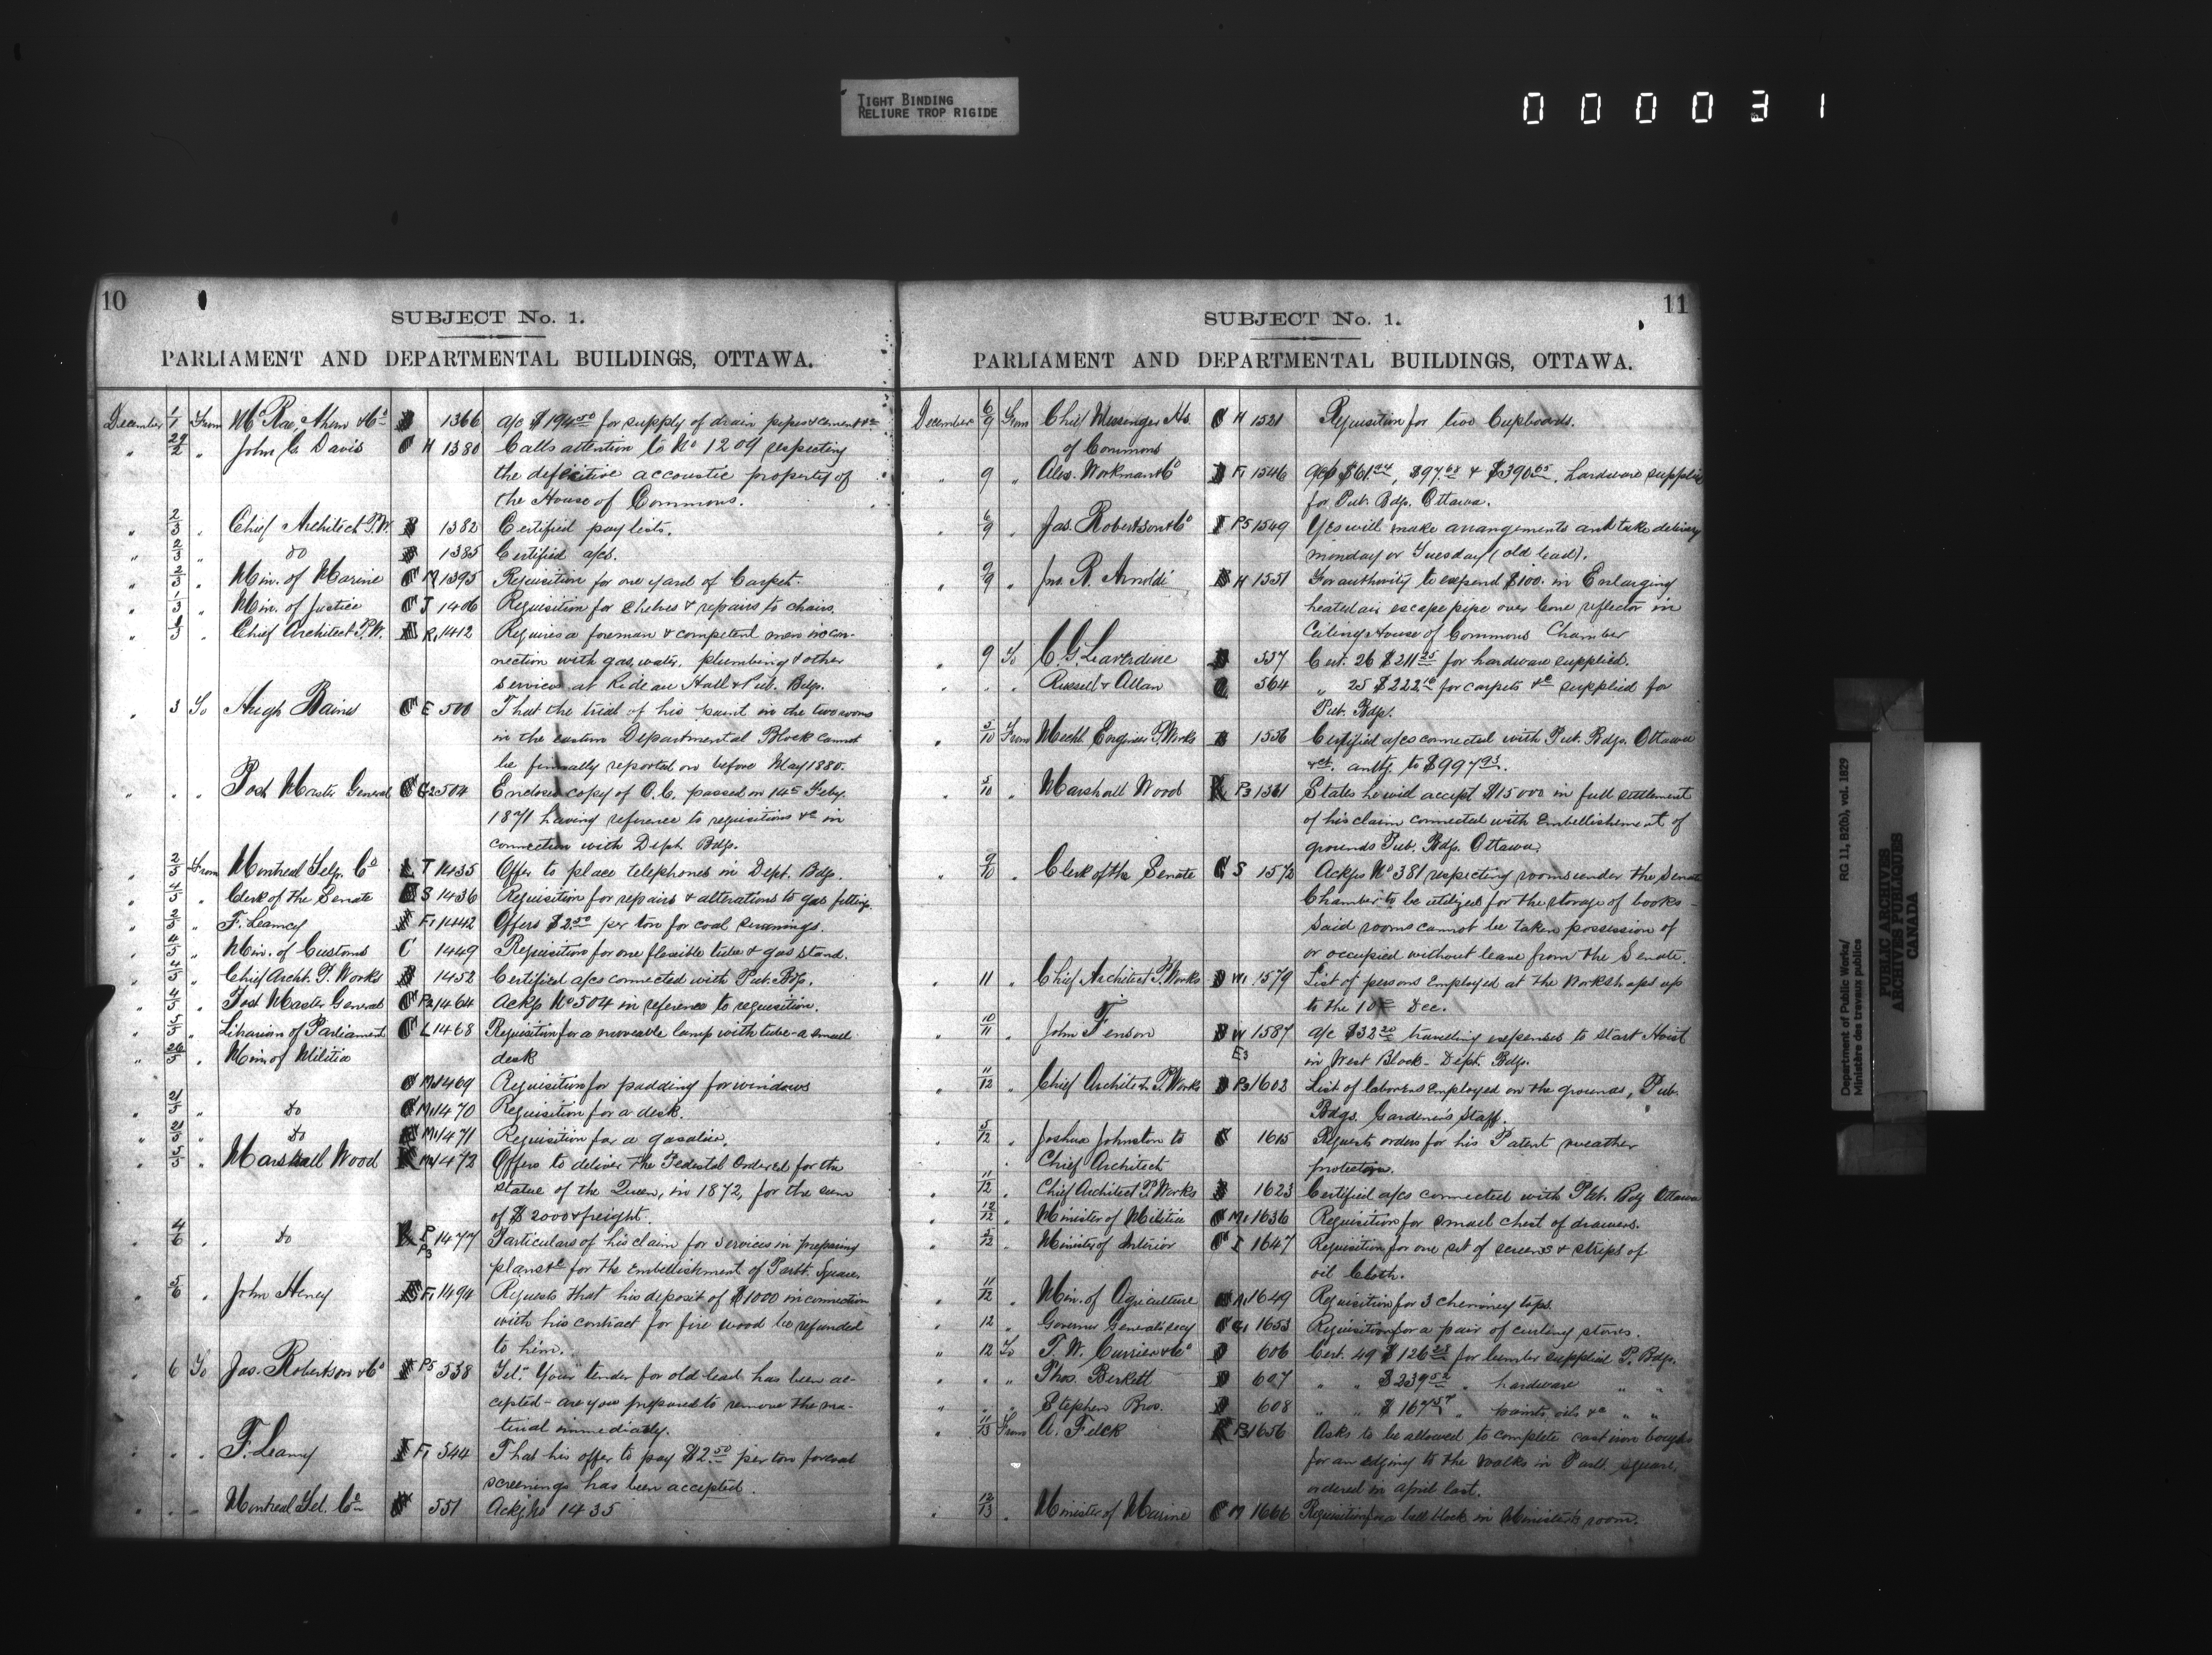 TIGHT BINDING
RELIURE TROP RIGIDE
000031
10
SUBJECT No. 1.
PARLIAMENT AND DEPARTMENTAL BUILDINGS, OTTAWA.
December 1/1 From McRae, Ahern & Co 1366 a/c $194.50 for supply of drain pipes & cement &c
" 29/2 " John C. Davis C H 1380 Calls attention to No 1209 respecting
the defective accoustic property of
the House of Commons.
" 2/3 " Chief Architect P.W. 1382 Certified pay lists.
" 2/3 " do 1385 Certified a/cs.
" 2/3 " Min. of Marine C M 1395 Requisition for one yard of Carpet.
" 1/3 " Min. of Justice C J 1406 Requisition for shelves & repairs to chairs.
" Chief Architect P.W. 1412 Requires a foreman & competent men in con-
nection with gas, water, plumbing & other
services at Rideau Hall & Pub. Bdgs.
" 3 To Hugh Baines C E 500 That the trial of his paint in the two rooms
in the eastern Departmental Block cannot
be finally reported on before May 1880.
" " " Post Master General C G2 504 Encloses copy of O.C. passed on 14th Feby.
1871 having reference to requisitions &c in
connection with Dept. Bdgs.
" 2/5 From Montreal Telp. Co T 1435 Offer to place telephones in Dept. Bdgs.
" 4/5 " Clerk of the Senate S 1436 Requisition for repairs & alterations to gas fittings.
" 2/5 " F. Leamy F1 1442 Offers $2.50 per ton for coal screenings.
" 4/5 " Min. of Customs C 1449 Requisition for one flexible tube & gas stand.
" 4/5 " Chief Archt. P. Works 1452 Certified a/cs connected with Pub. Bdgs.
" 4/5 " Post Master General C P2 1464 Ackgs No 504 in reference to requisition.
" 5/5 " Librarian of Parliament C L 1468 Requisition for a moveable lamp with tube - a small
" 26/5 " Min. of Militia desk
C M1 1469 Requisition for padding for windows
" 21/5 " do C M1 1470 Requisition for a desk.
" 21/5 " do M1 1471 Requisition for a gasalier.
" 5/5 " Marshall Wood 1472 Offers to deliver the Pedestal ordered for the
statue of the Queen, in 1872, for the sum
of $2000 & freight.
" 4/6 " do P3 1477 Particulars of his claim for services in preparing
plans &c for the embellishment of Parlt. Square.
" 5/6 " John Heney F1 1494 Requests that his deposit of $1000 in connection
with his contract for fire wood be refunded
to him.
" 6 To Jas. Robertson & Co P5 538 Tel: "Your tender for old lead has been ac-
cepted - are you prepared to remove the ma-
terial immediately.
" " " F. Leamy F1 544 That his offer to pay $2.50 per ton for coal
screenings has been accepted.
" " " Montreal Tel. Co 551 Ackg No 1435
11
SUBJECT No. 1.
PARLIAMENT AND DEPARTMENTAL BUILDINGS, OTTAWA.
December 6/9 From Chief Messenger Ho. C H 1521 Requisition for two Cupboards.
of Commons
" 9 " Alex. Workman & Co F1 1546 a/cs $61.24, $97.68 & $390.65, hardware supplied
for Pub. Bdgs. Ottawa.
" 6/9 " Jas. Robertson & Co P5 1549 Yes will make arrangements and take delivery
monday or Tuesday (old lead).
" 9/9 " Jno. R. Arnoldi H 1551 For authority to expend $100. in Enlarging
heated air escape pipe over Cone reflector in
Ceiling House of Commons Chamber
" 9 To C. G. Laverdine 557 Cert. 26 $211.25 for hardware supplied.
" " Russell & Allan 564 " 25 $222.10 for carpets &c supplied for
Pub. Bdgs.
" 5/10 From Mechl. Engineer P. Works 1556 Certified a/cs connected with Pub. Bdgs. Ottawa
&c. amtg. to $997.93.
" 5/10 " Marshall Wood P3 1561 States he will accept $15000 in full settlement
of his claim connected with Embellishment of
grounds Pub. Bdgs. Ottawa.
" 9/10 " Clerk of the Senate C S 1572 Ackgs No 381 respecting rooms under the Senate
Chamber to be utilized for the storage of books -
said rooms cannot be taken possession of
or occupied without leave from the Senate.
11 " Chief Architect P. Works W1 1579 List of persons employed at the Workshops up
to the 10th Dec.
10/11 " John Fenson W 1587 a/c $32.20 travelling expenses to start Hoist
E3 in West Block - Dept. Bdgs.
" 11/12 " Chief Architect P. Works P3 1602 List of laborers employed on the grounds, Pub.
Bdgs. Gardener's Staff.
" 5/12 " Joshua Johnston to 1615 Requests orders for his Patent weather
Chief Architect protectors.
" 11/12 " Chief Architect P. Works 1623 Certified a/cs connected with Pub. Bdg Ottawa
" 12/12 " Minister of Militia C M1 1636 Requisition for small chest of drawers.
" 5/12 " Minister of Interior C I 1647 Requisition for one set of screens & strips of
oil Cloth.
" 11/12 " Min. of Agriculture 1649 Requisition for 3 chimney tops.
" 12 " Governor General's Secy C G1 1653 Requisition for a pair of curling stones.
" 12 To T. W. Currier & Co 606 Cert. 49 $126.28 for lumber supplied P. Bdgs.
" " " Thos. Birkett 607 " " $239.52 " hardware " "
" " " Stephen Bros. 608 " " $167.57 " paints oils &c " "
" 11/13 From A. Fleck P3 1656 Asks to be allowed to complete cast iron boughs
for an edging to the walks in Parlt. square,
ordered in April last.
" 12/13 " Minister of Marine C M 1666 Requisition for a bell block in Ministers room.
Department of Public Works/
Ministère des travaux publics
RG 11, B2(b), vol. 1829
PUBLIC ARCHIVES
ARCHIVES PUBLIQUES
CANADA